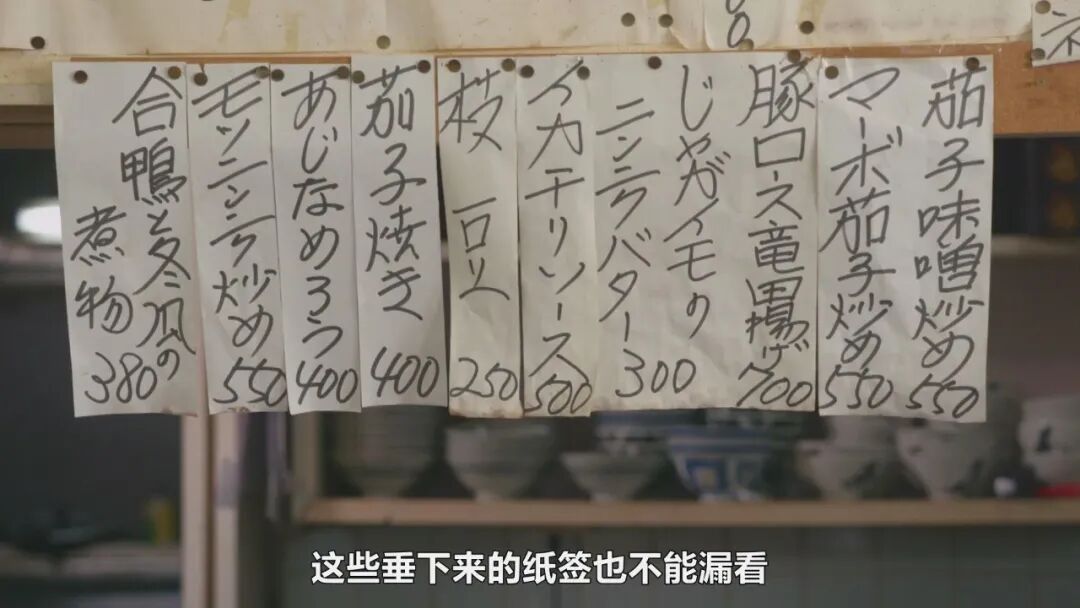 茄子味噌炒め 550
マーボ茄子炒め 550
豚ロース竜田揚げ 700
じゃがイモの
ニンニクバター 300
イカチリソース 500
枝豆 250
茄子焼き 400
あじなめろう 400
モツニンニク炒め 550
合鴨と冬瓜の
煮物 380
这些垂下来的纸签也不能漏看